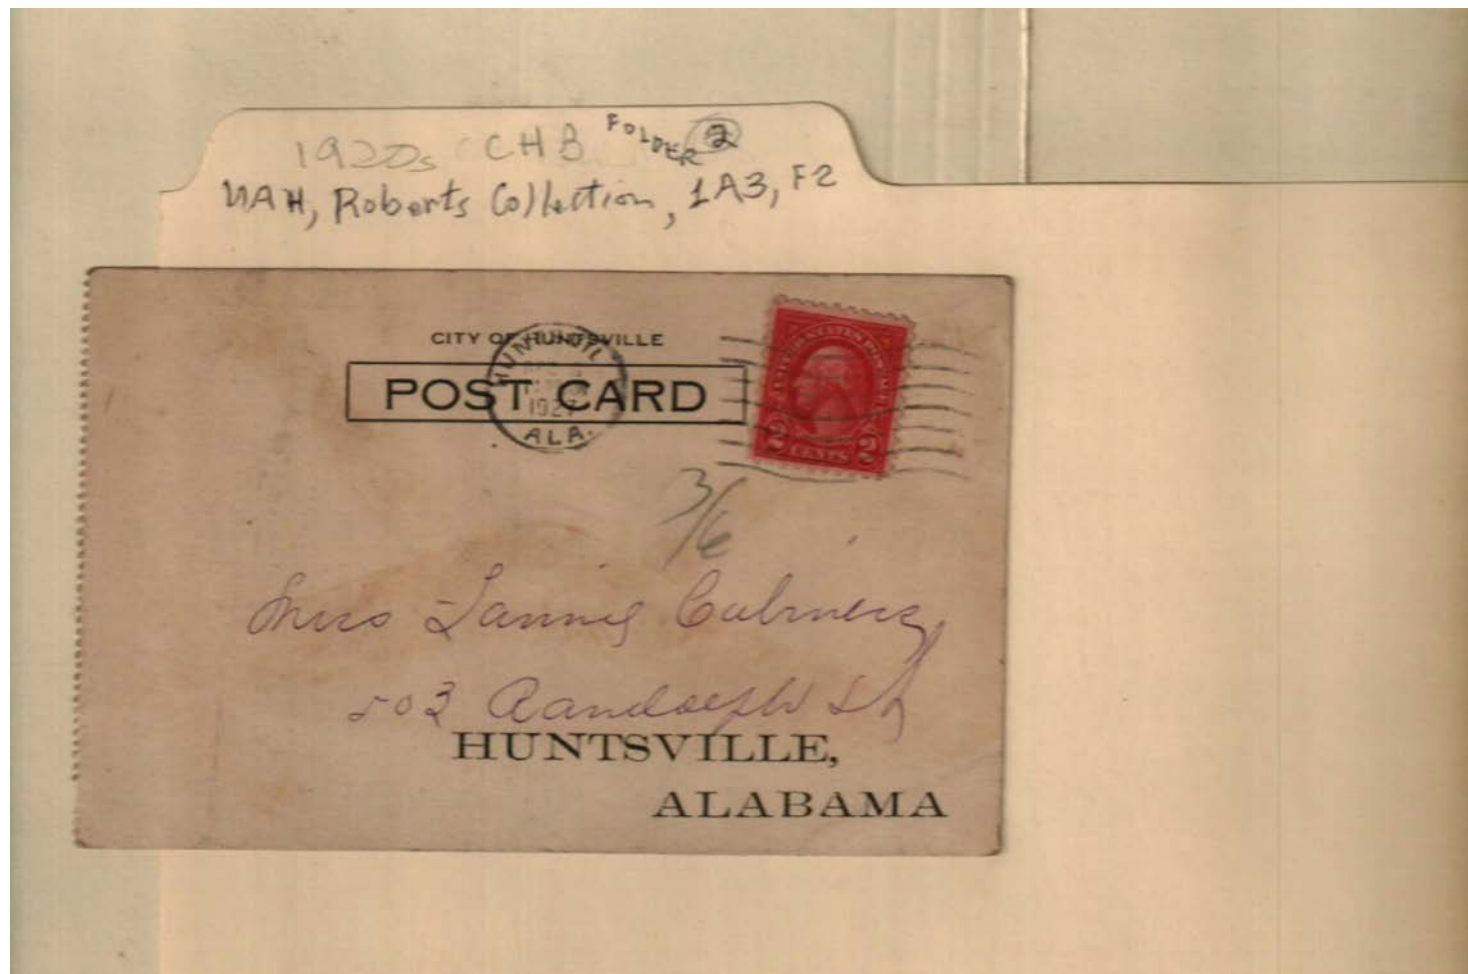 1920s CHB FOLDER 2
UAH, Roberts Collection, 1A3, F2
CITY OF HUNTSVILLE
POST CARD
HUNTSVILLE
1927
ALA.
UNITED STATES POSTAGE
2 CENTS 2
3/6
Miss Fannie Cabiness
503 Randolph St
HUNTSVILLE,
ALABAMA